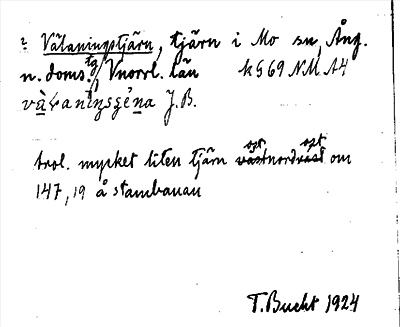 ? Välaningstjärn, tjärn i Mo sn, Ång.
n. doms.tg, Vnorrl. län k 569 NM. A4
J.B.
trol. mycket liten tjärn västnordväst om
ost ost
147,19 å stambanan
T. Bucht 1924